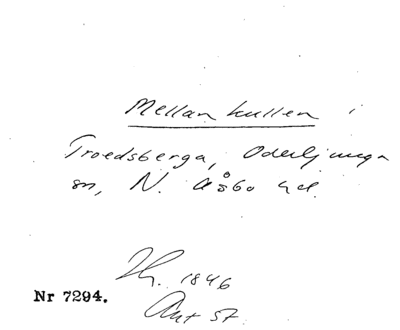 Mellankullen i
Troedsberga, Oderljunga
sn, N. Åsbo hd.
Hg. 1846
Ant 57.
Nr 7294.